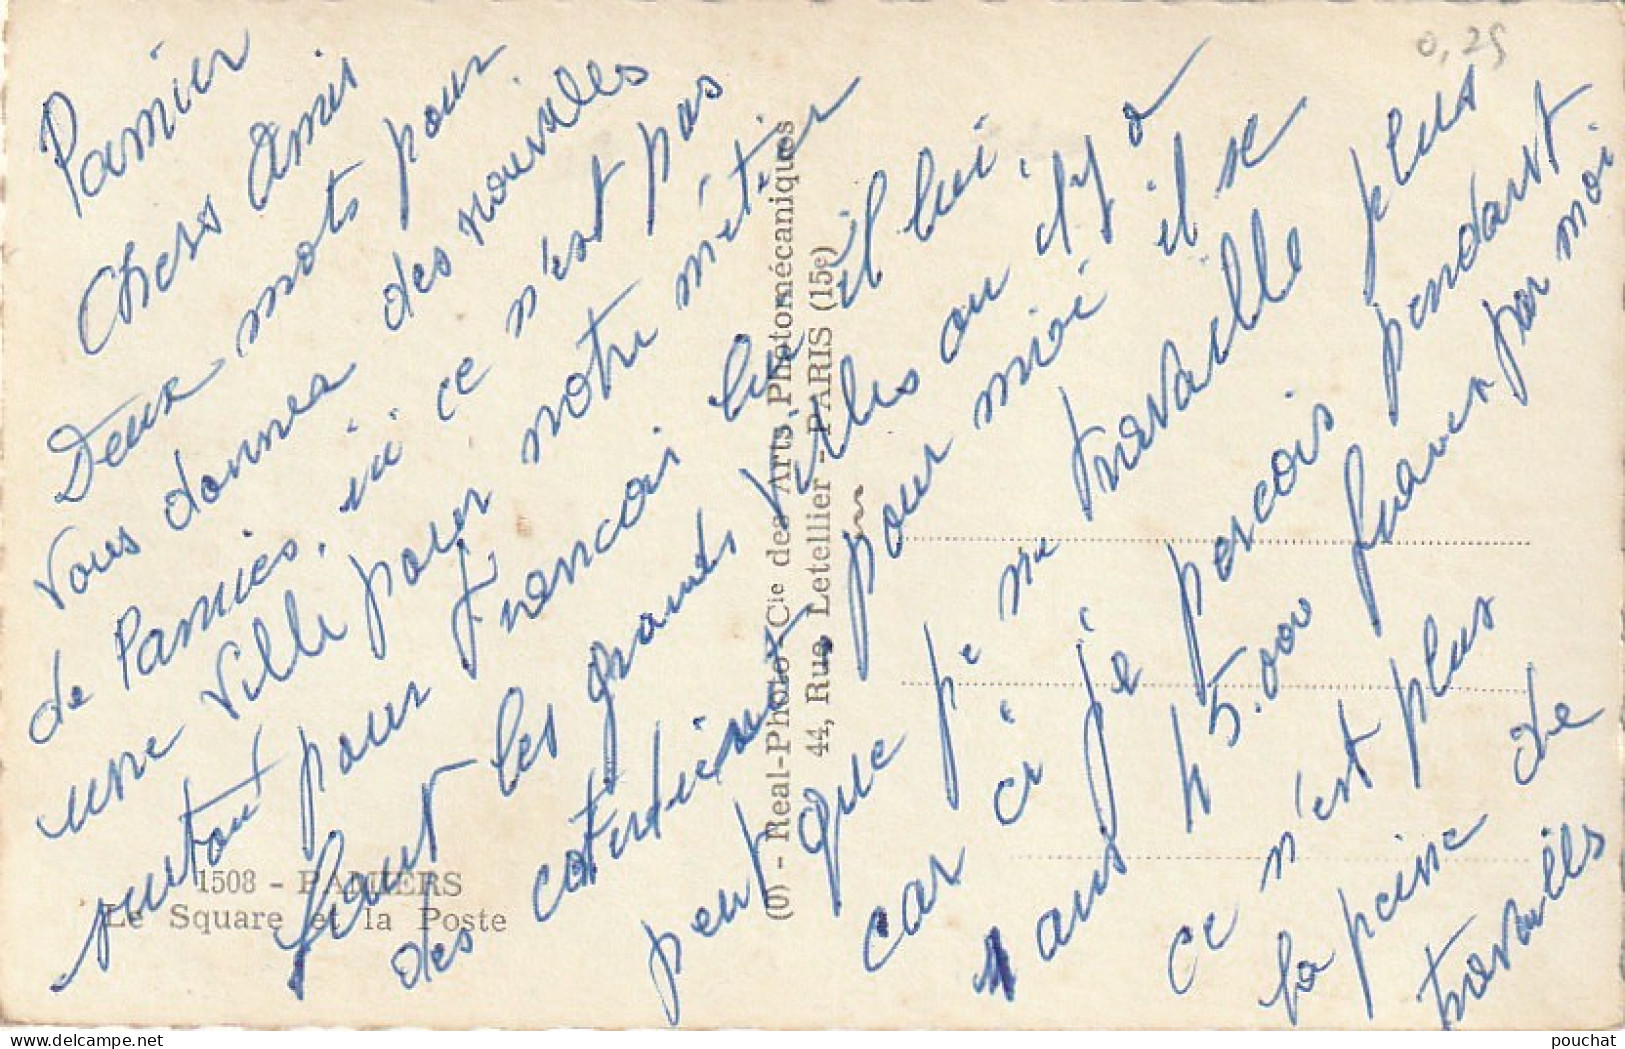 0,25
Pamier
Chers Amis
Deux mots pour
vous donner des nouvelles
de Pamies. ici ce n'est pas
une ville pour notre métier
surtout pour Francoi lui il lui
faut les grandes villes ou il y a
des caterieux, pour moi il se
peut que je ne travaille plus
car ci je percois pendant
1 ans 45.000 franer par moi
ce n'est plus
la peine de
travailles
1508 - PAMIERS
Le Square et la Poste
(O) - Real-Photo Cie des Arts Photomécaniques
44, Rue Letellier - PARIS (15e)
pouchat